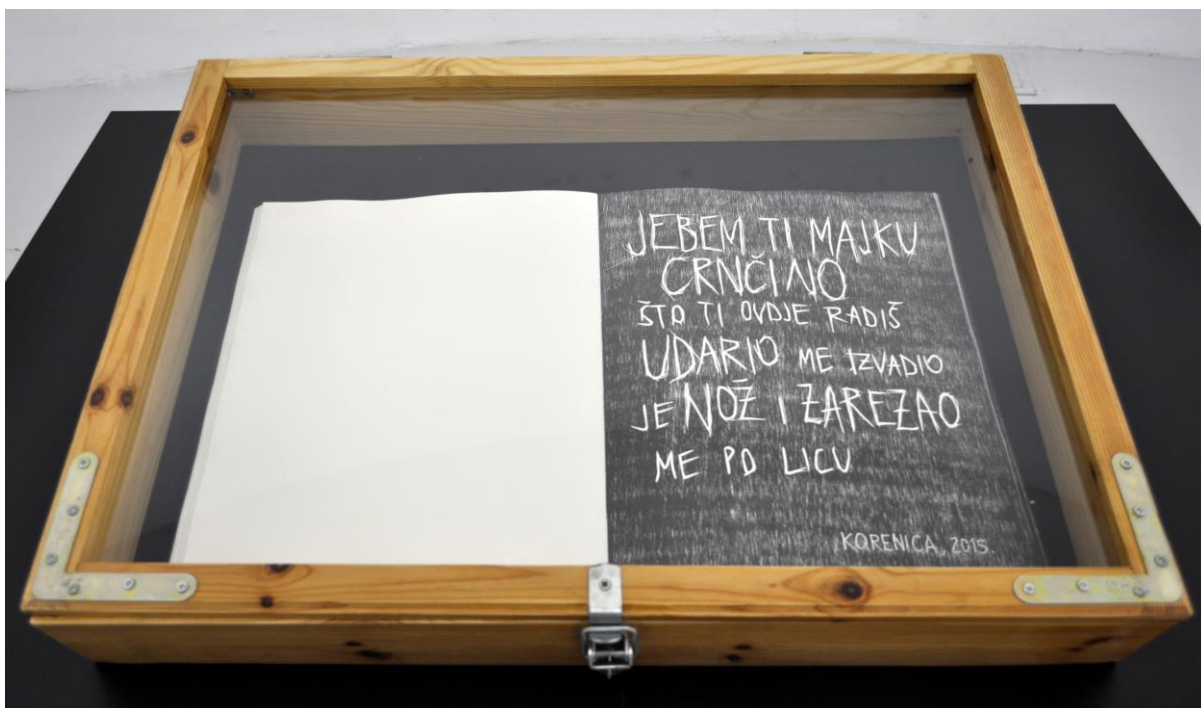 JEBEM TI MAJKU
CRNČINO
ŠTO TI OVDJE RADIŠ
UDARIO ME IZVADIO
JE NOŽ I ZAREZAO
ME PO LICU
KORENICA, 2015.